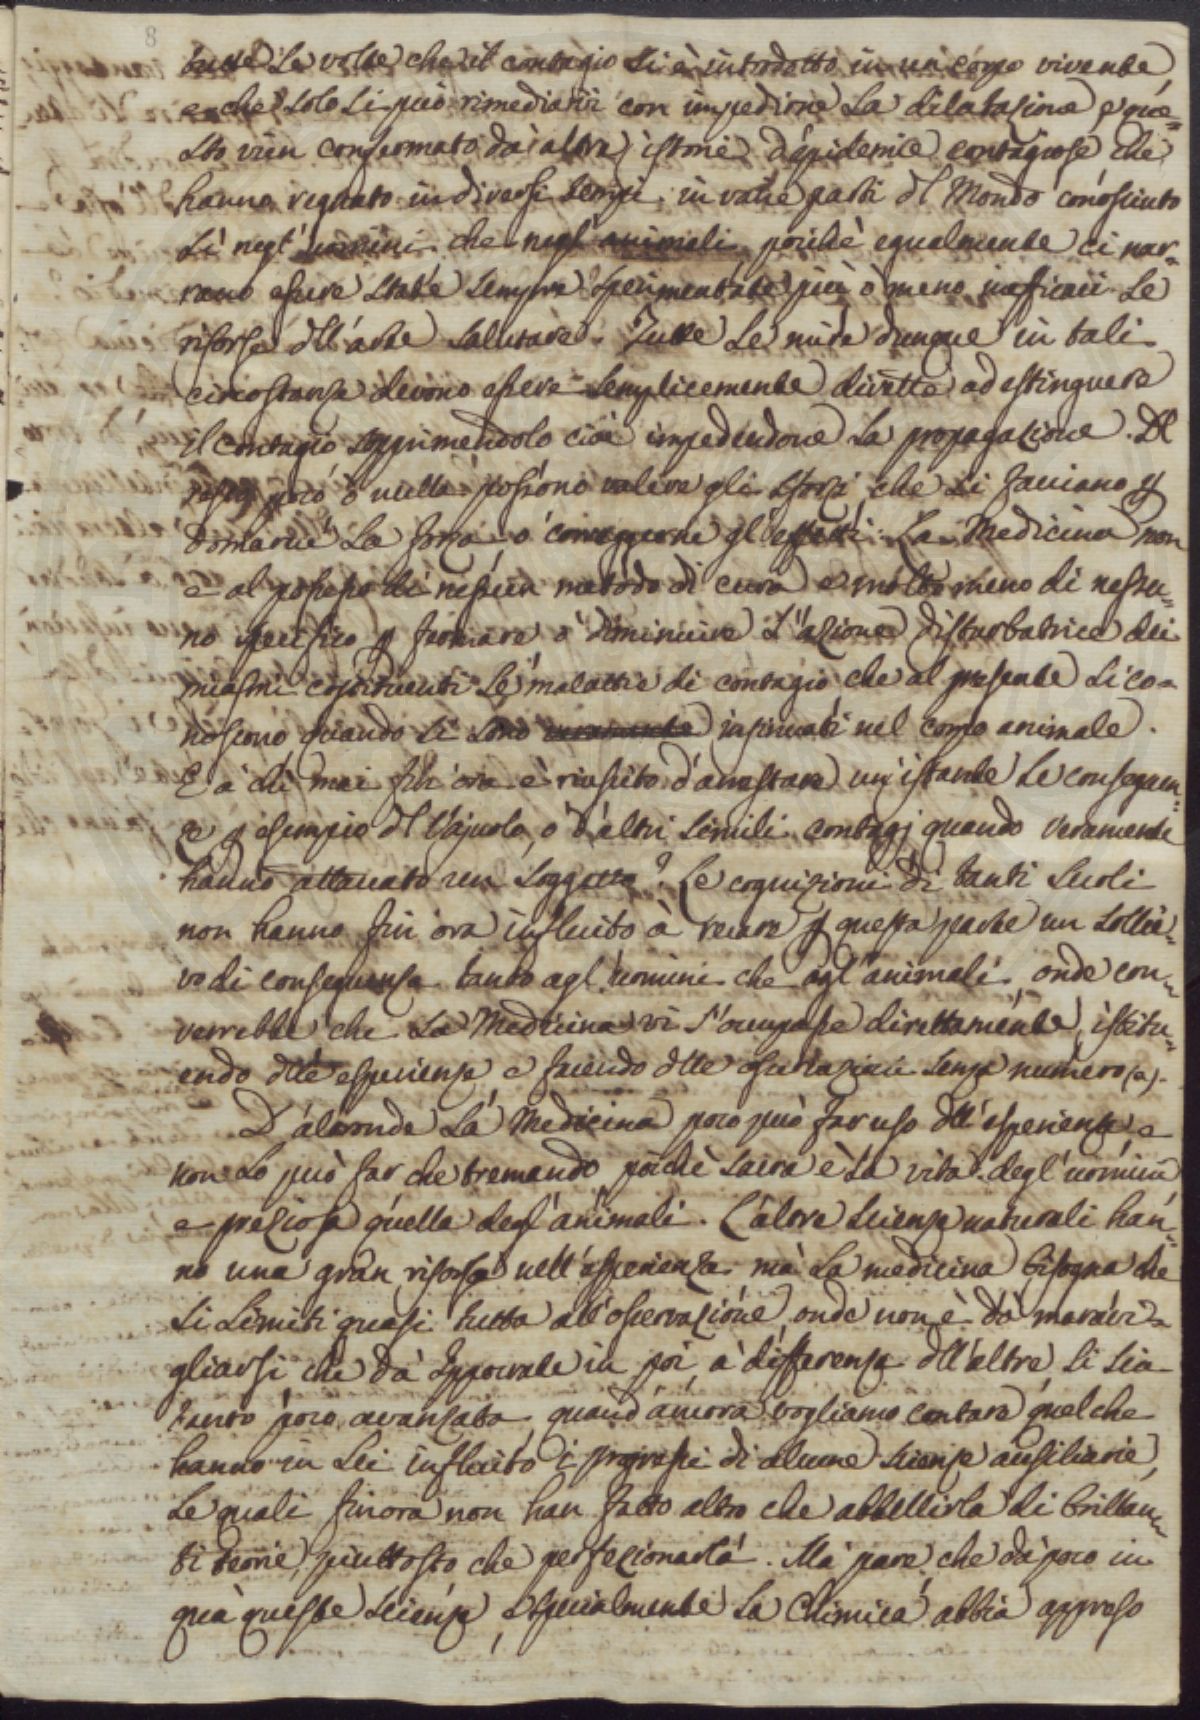 8
tutte le volte che il contagio si è introdotto in un corpo vivente
e che solo si può rimediarvi con impedirne la dilatazione e que=
sto vien confermato da altre istorie d'epidemie contagiose che
hanno regnato in diversi tempi in varie parti dl Mondo conosciuto
sì negl'uomini che negl'animali, poichè egualmente ci nar=
rano essere state sempre sperimentate più ò meno inefficaci le
risorse dll'arte salutare. Tutte le mire dunque in tali
circostanze devono essere semplicemente dirette ad estinguere
il contagio opprimendolo cioè impedendone la propagazione. Dl
resto poco ò nulla possono valere gli sforzi che si facciano p
domarne la forza o correggerne gl'effetti. La Medicina non
è al possesso di nessun metodo di cura e molto meno di nessu=
no specifico p fermare o diminuire l'azione disturbatrice dei
miasmi costituenti le malattie di contagio che al presente si co=
noscono quando si sono veramente insinuati nel corpo animale.
E à chi mai fin'ora è riuscito d'arrestare un'istante le conseguen=
ze p esempio dl Vajuolo, o d'altri simili contagj quando veramente
hanno attaccato un soggetto? Le cognizioni di tanti secoli
non hanno fin'ora influito à recare p questa parte un sollie=
vo di conseguenza tanto agl'uomini che agl'animali, onde con=
verrebbe che la Medicina vi s'occupasse direttamente, istitu=
endo dlle esperienze e facendo dlle osservazioni senza numero (a).
D'altronde la Medicina poco può far uso dll'esperienza, e
non lo può far che tremando, poichè sacra è la vita degl'uomini
e preziosa quella degl'animali. L'altre scienze naturali han=
no una gran risorsa nell'esperienza, mà la medicina bisogna che
si limiti quasi tutta all'osservazione, onde non è da maravi=
gliarsi che dà Ippocrate in poi, à differenza dll'altre, si sia
tanto poco avanzata, quand'ancora vogliamo contare quel che
hanno in lei influito i progressi di alcune scienze ausiliarie,
le quali finora non han fatto altro che abbellirla di brillan=
ti teorie, piuttosto che perfezionarla. Ma pare che dà poco in
quà queste scienze, specialmente la Chimica abbia appreso